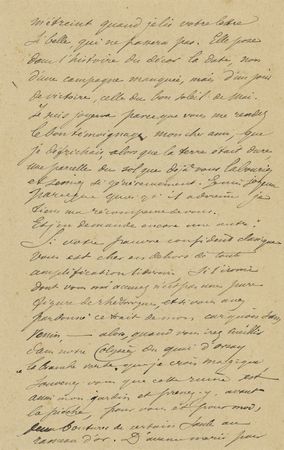 m'étreint quand je lis votre lettre
si belle qui ne passera pas. Elle pose
dans l'histoire du décor la date, non
d'une campagne manquée, mais d'un jour
de victoire, celle du bon soleil de Mai.
Je suis joyeux parce que vous me rendez
le bon témoignage, mon cher ami, que
je défrichais, alors que la terre était dure,
une parcelle du sol que déjà vous labouriez
et semiez si généreusement. Et suis joyeux
parce que quoi qu'il advienne j'ai
bien ma récompense de vous.
Et j'en demande encore une autre!
Si votre pauvre confident classique
vous est cher en dehors de toute
amplification
dont vous m'accusez n'est pas une pure
figure de rhétorique, et si vous avez
pardonné ce trait de mon carquois sans
venin — alors, quand vous irez cueillir
dans notre Colysée du quai d'Orsay
la branche verte que je crois magique
souvenez vous que cette ruine est
aussi mon jardin et prenez-y, avant
la pioche, pour vous et pour moi,
deux boutures de certain saule au
rameau d'or. D'avance merci pour